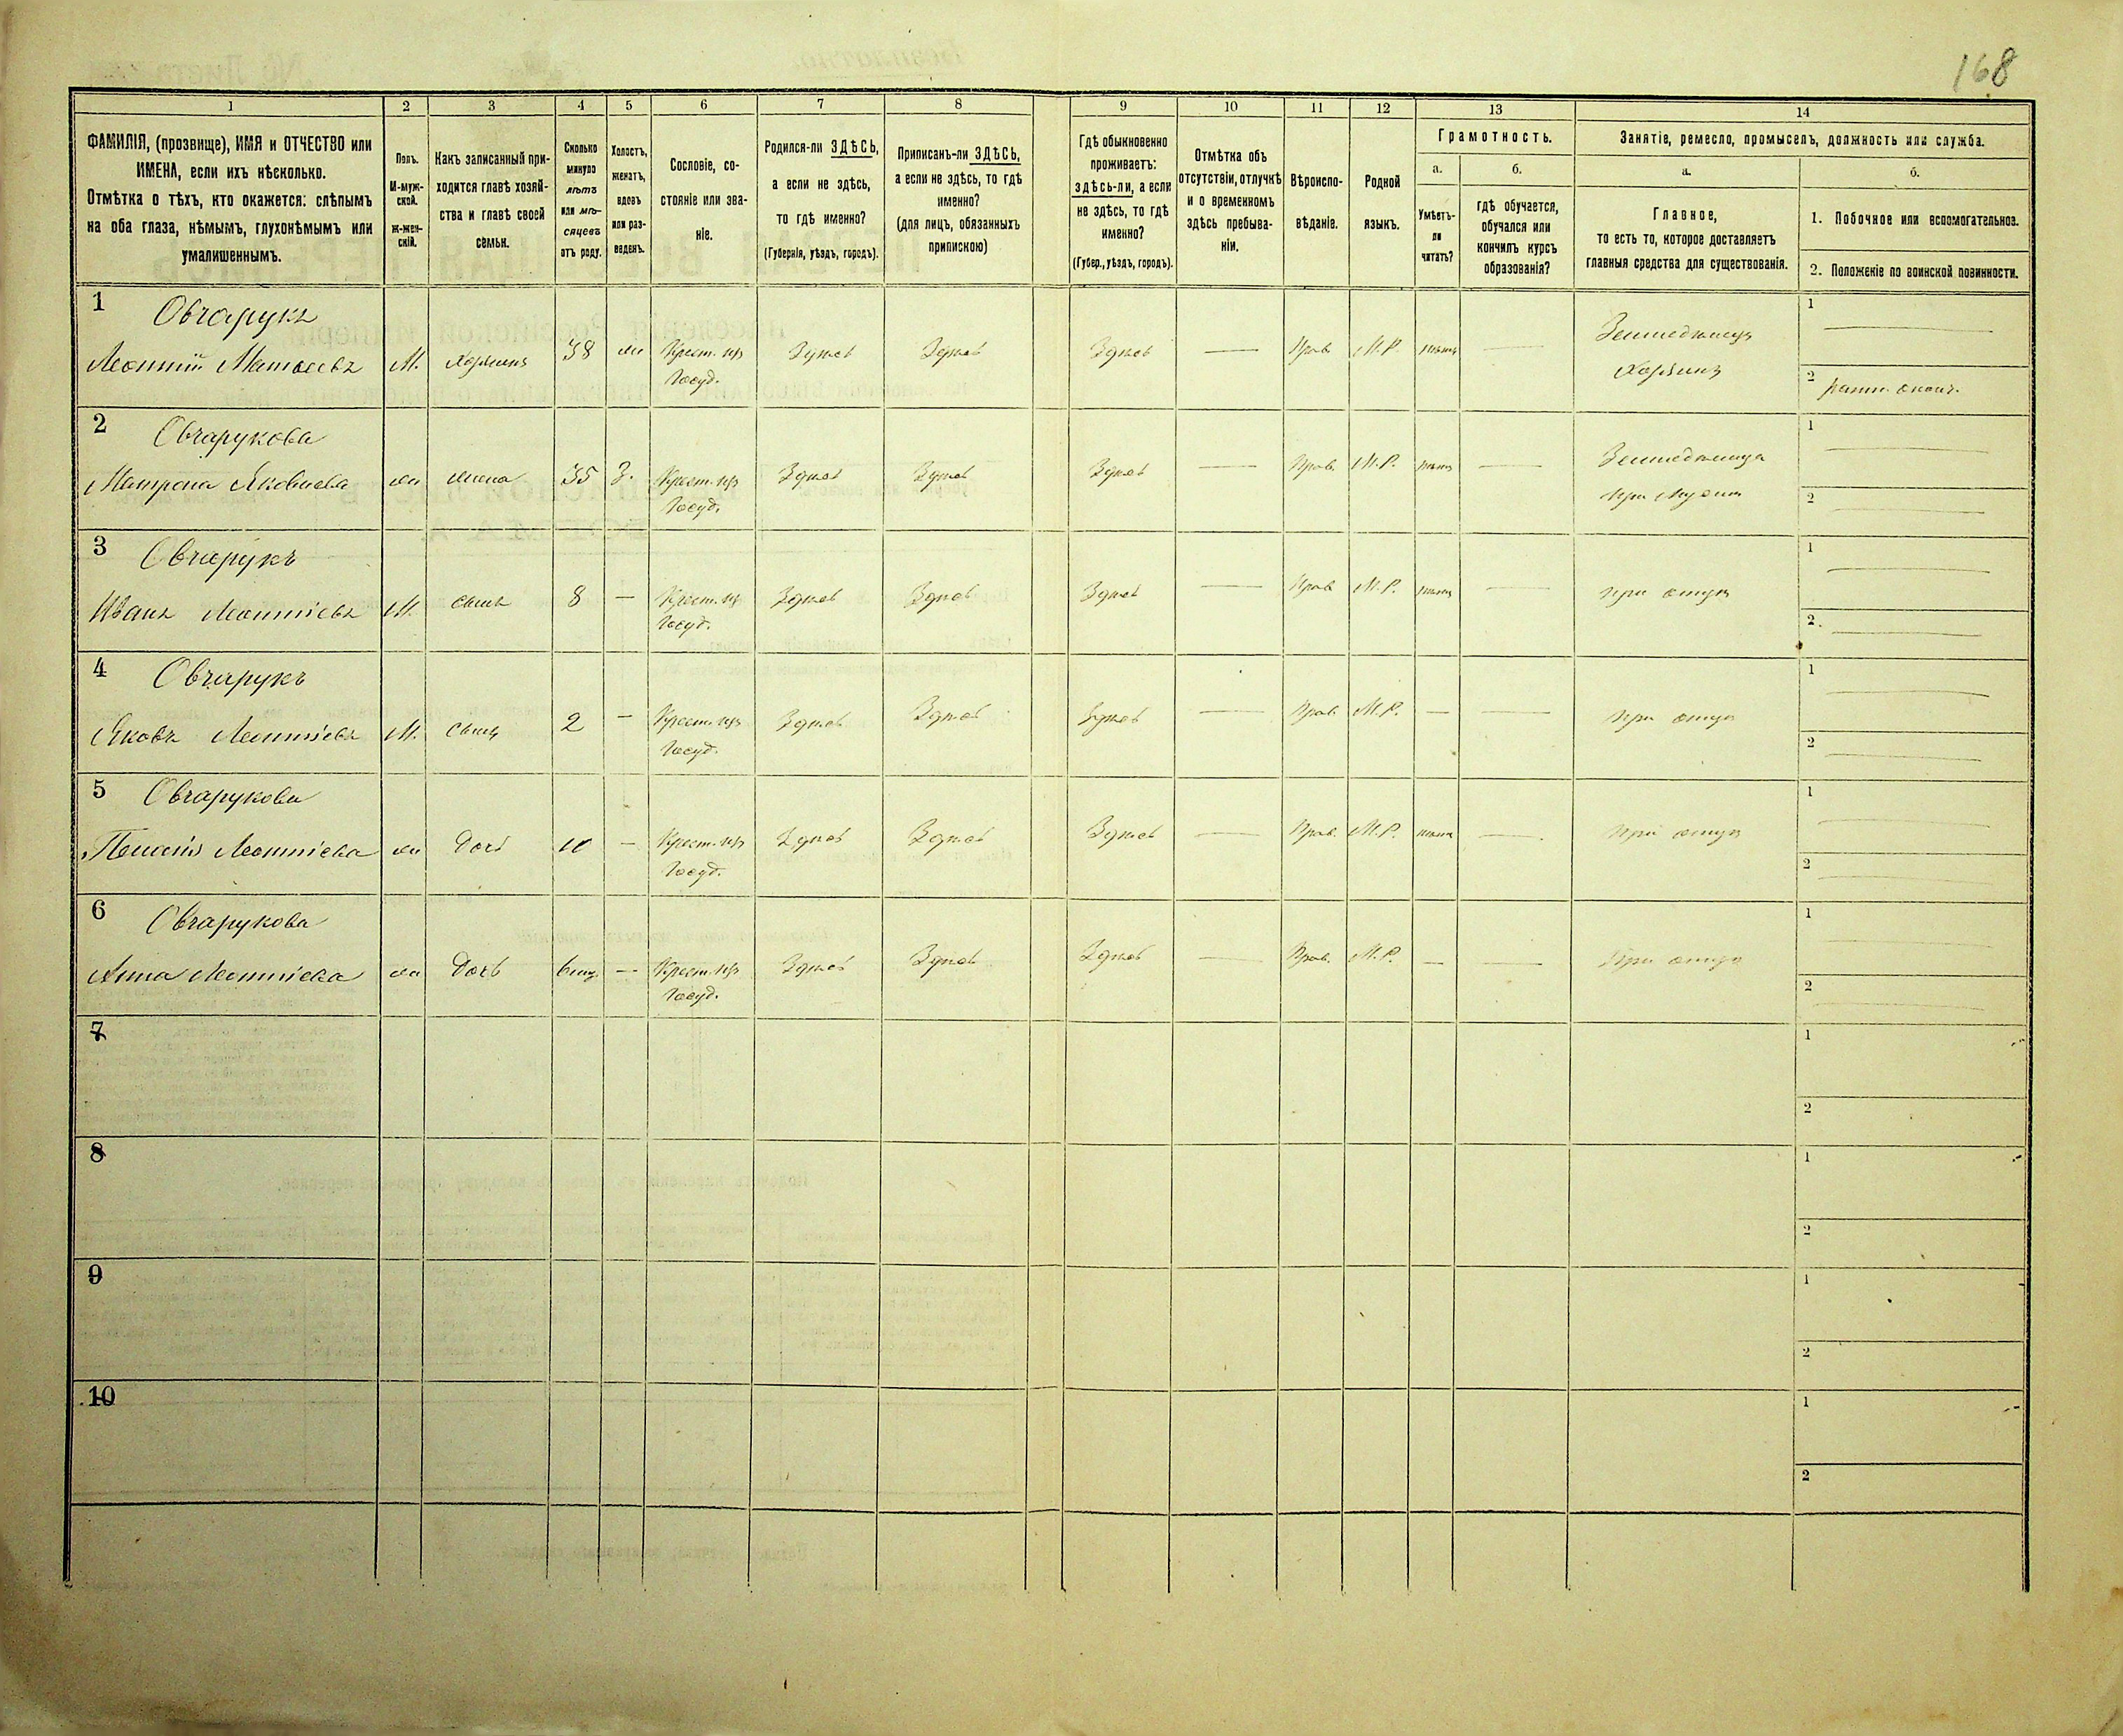 168
1 2 3 4 5 6 7 8 9 10 11 12 13 14
ФАМИЛІЯ, (прозвище), ИМЯ и ОТЧЕСТВО или
ИМЕНА, если ихъ нѣсколько.
Отмѣтка о тѣхъ, кто окажется: слѣпымъ
на оба глаза, нѣмымъ, глухонѣмымъ или
умалишеннымъ.
Полъ.
М-муж-
ской.
ж-жен-
скій.
Какъ записанный при-
ходится главѣ хозяй-
ства и главѣ своей
семьи.
Сколько
минуло
лѣтъ
или мѣ-
сяцевъ
отъ роду.
Холостъ,
женатъ,
вдовъ
или раз-
веденъ.
Сословіе, со-
стояніе или зва-
ніе.
Родился-ли ЗДѢСЬ,
а если не здѣсь,
то гдѣ именно?
(Губернія, уѣздъ, городъ).
Приписанъ-ли ЗДѢСЬ,
а если не здѣсь, то гдѣ
именно?
(для лицъ, обязанныхъ
припискою)
Гдѣ обыкновенно
проживаетъ:
здѣсь-ли, а если
не здѣсь, то гдѣ
именно?
(Губер., уѣздъ, городъ).
Отмѣтка объ
отсутствіи, отлучкѣ
и о временномъ
здѣсь пребыва-
ніи.
Вѣроиспо-
вѣданіе.
Родной
языкъ.
Грамотность.
а.
Умѣетъ-
ли
читать?
б.
гдѣ обучается,
обучался или
кончилъ курсъ
образованія?
Занятіе, ремесло, промыселъ, должность или служба.
а.
Главное,
то есть то, которое доставляетъ
главныя средства для существованія.
б.
1. Побочное или вспомогательное.
2. Положеніе по воинской повинности.
1 Овчарукъ
Леонтій Матвеевъ М. хозяинъ 38 ж Крест. из Здѣсь Здѣсь Здѣсь — Прав. М.Р. нѣтъ — Земледелецъ 1 —
Госуд. Хозяинъ 2
2 Овчарукова
Матрона Яковлева ж жена 35 З. Крест. из Здѣсь Здѣсь Здѣсь — Прав. М.Р. нѣтъ — Земледелица 1 —
Госуд. при мужи 2 —
3 Овчарукъ
Иванъ Леонтіевъ М. сынъ 8 — Крест. из Здѣсь Здѣсь Здѣсь — Прав. М.Р. нѣтъ — при отцы 1 —
Госуд. 2. —
4 Овчарукъ
Яковъ Леонтіевъ М. сынъ 2 — Крест. из Здѣсь Здѣсь Здѣсь — Прав. М.Р. — — при отцы 1 —
Госуд. 2 —
5 Овчарукова
Леонтіева ж дочь — Крест. из Здѣсь Здѣсь Здѣсь — Прав. М.Р. нѣтъ — при отцы 1 —
Госуд. 2 —
6 Овчарукова
Анна Леонтіева ж дочь — Крест. из Здѣсь Здѣсь Здѣсь — Прав. М.Р. — — при отцы 1 —
Госуд. 2 —
7 1
2
8 1
2
9 1
2
10 1
2